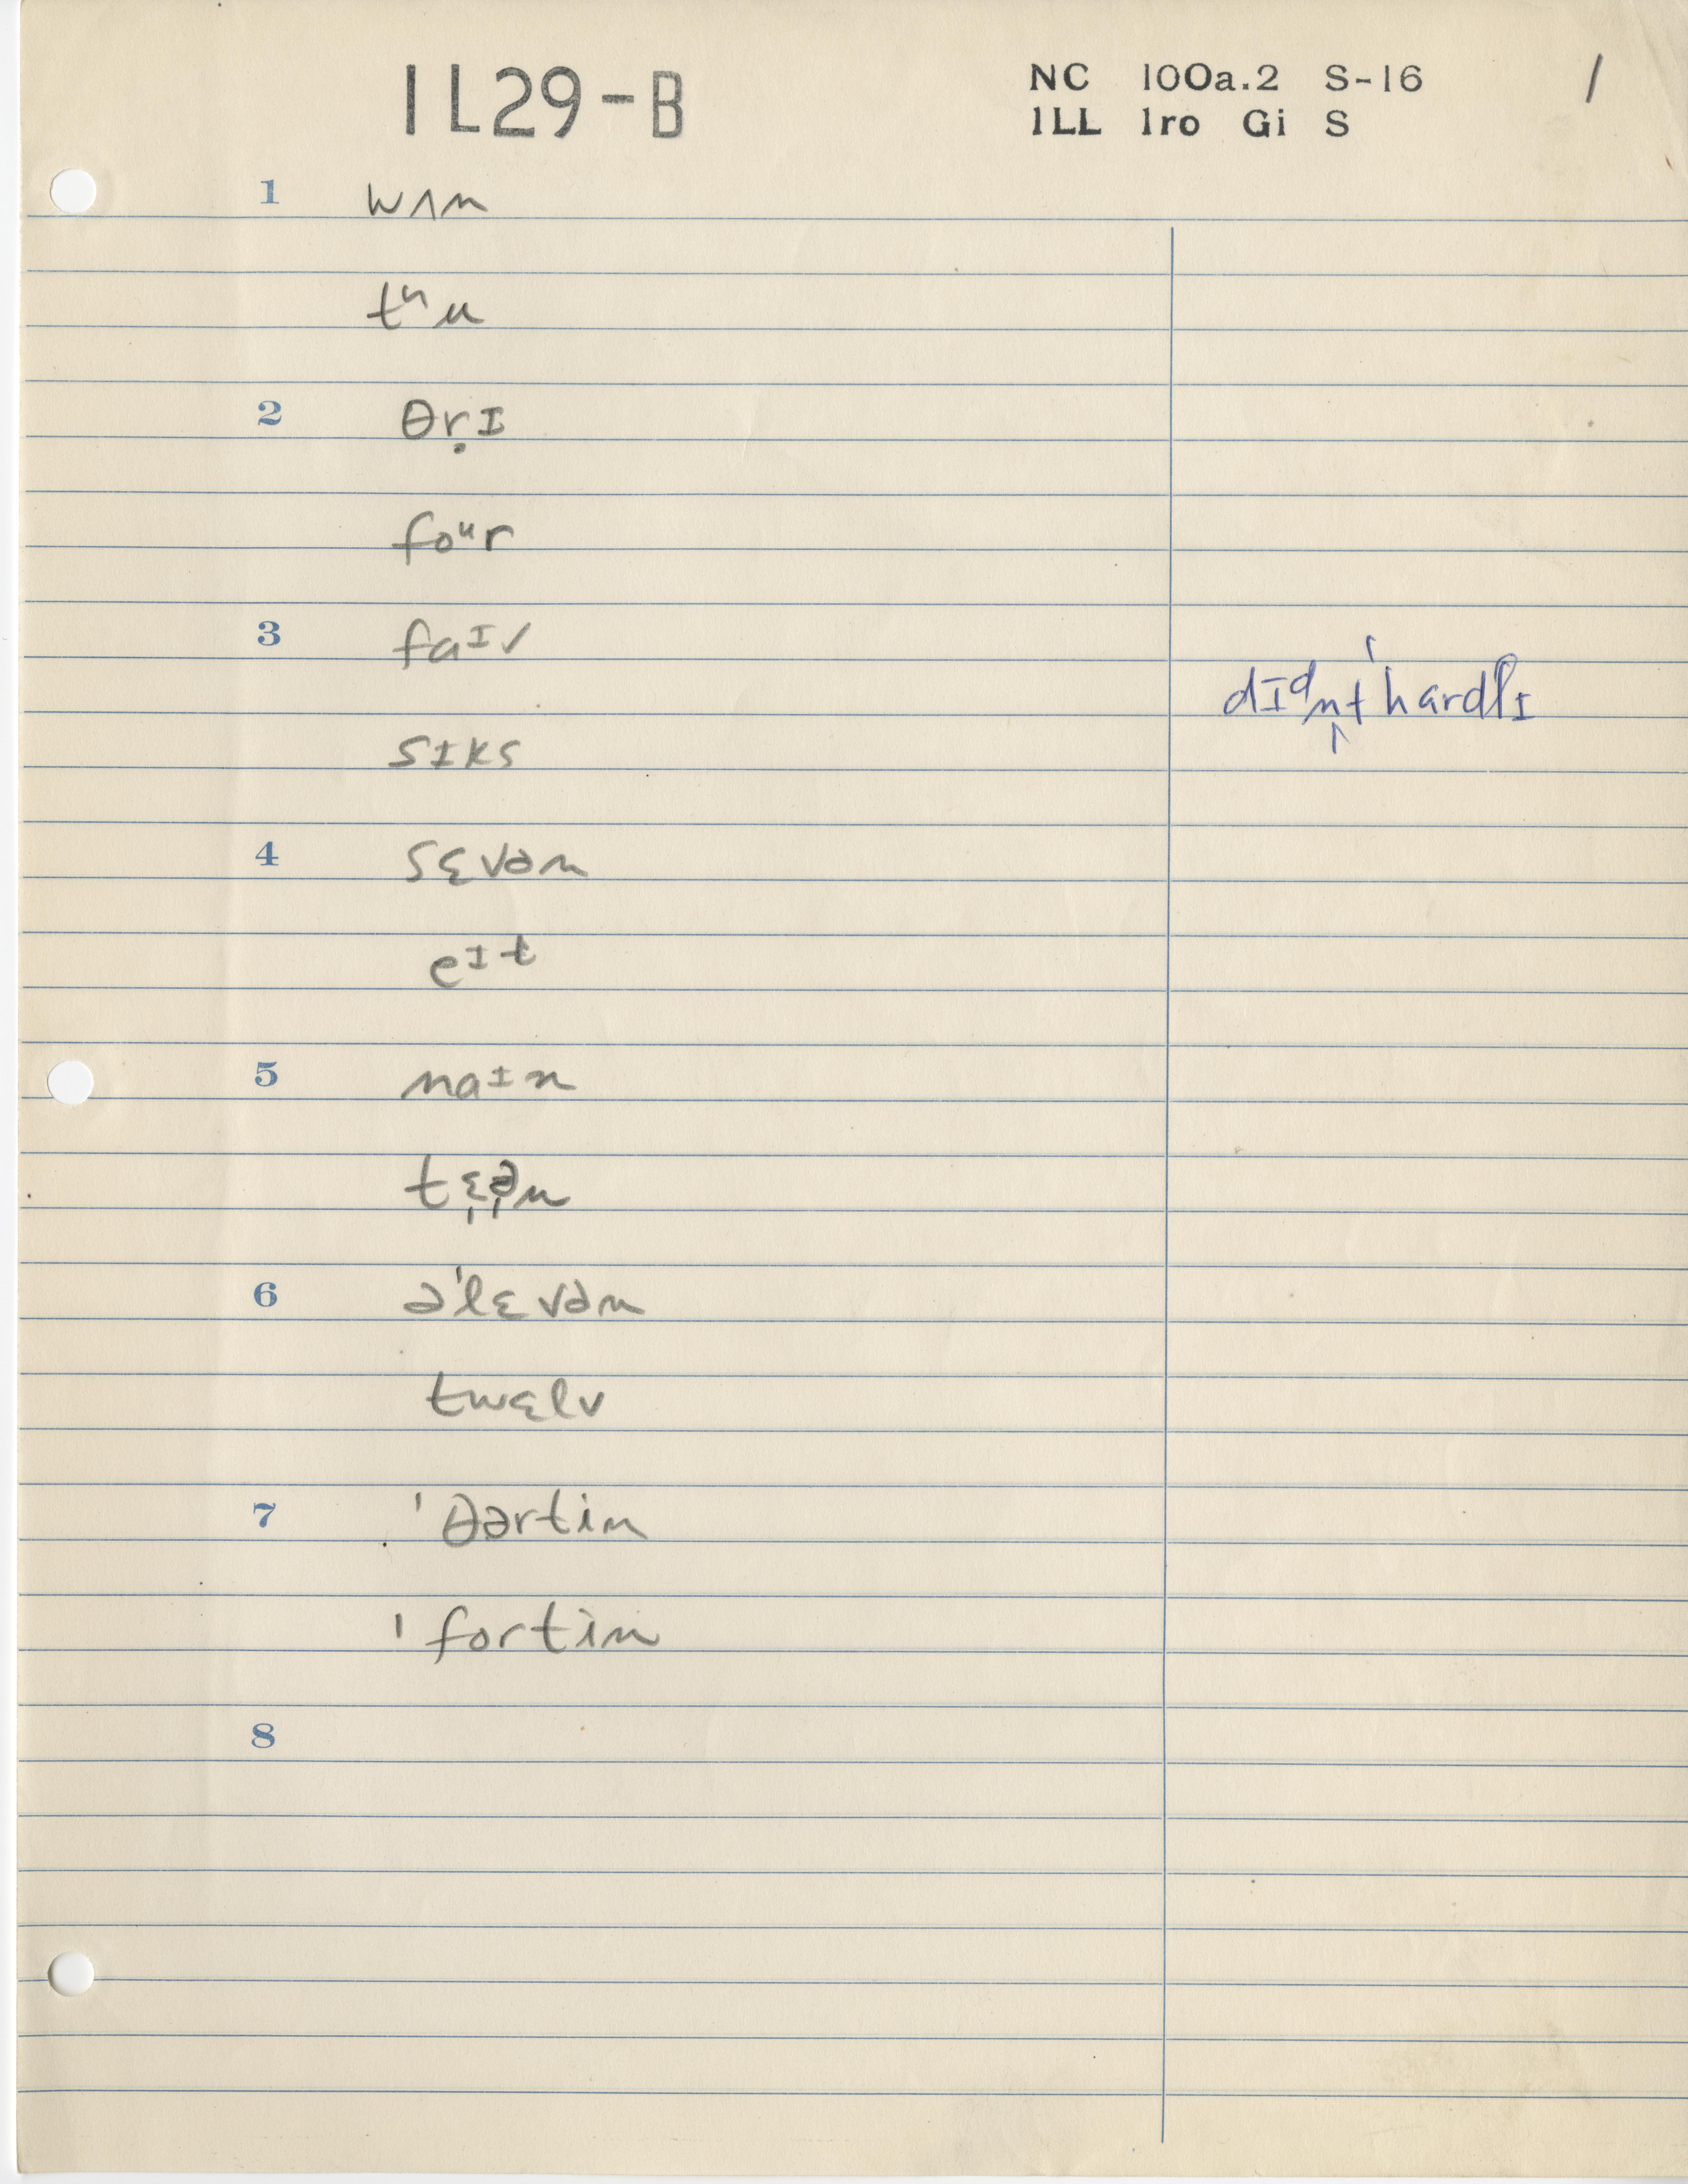 IL29-B
NC 100a.2 S-16 1
ILL Iro Gi S
1 wʌn
tᶸu
2 θṛɪ
foᵘr
3 faᶦv
dɪᵈn̩t ˈhardlɪ
sɪks
4 sɛvən
eᶦt
5 naᶦn
tɛ̩ə̩n
6 əˈlɛvən
twɛlv
7 ˈθərtin
ˈfortin
8